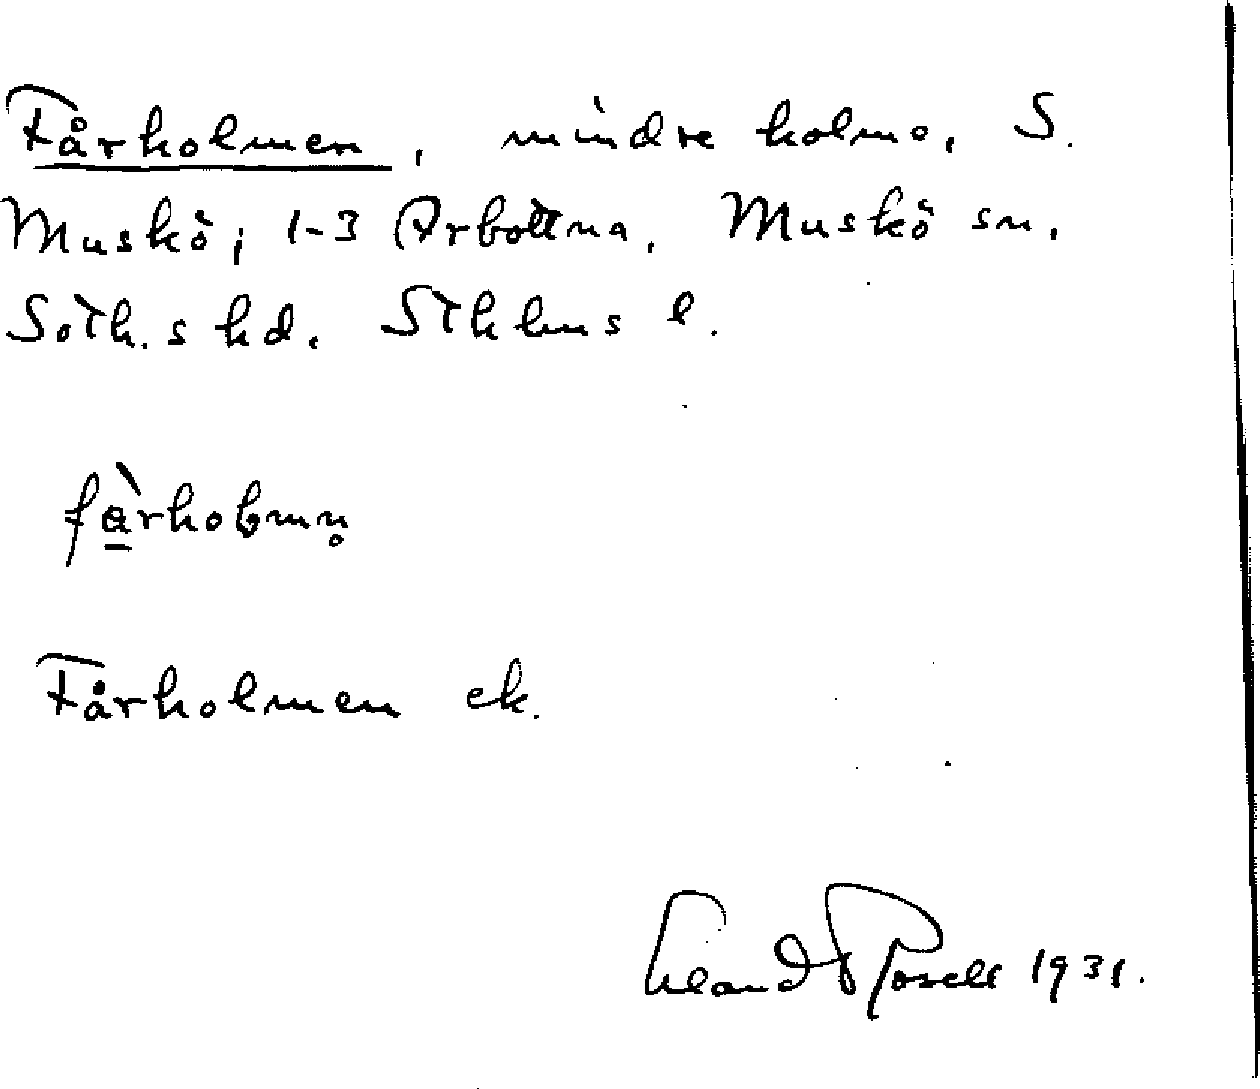 Fårholmen, mindre holme, S.
Muskö; 1-3 Arbottna, Muskö sn,
Soth.s hd. Sthlms l.
Fårholmen ek.
Erland Rosell 1931.